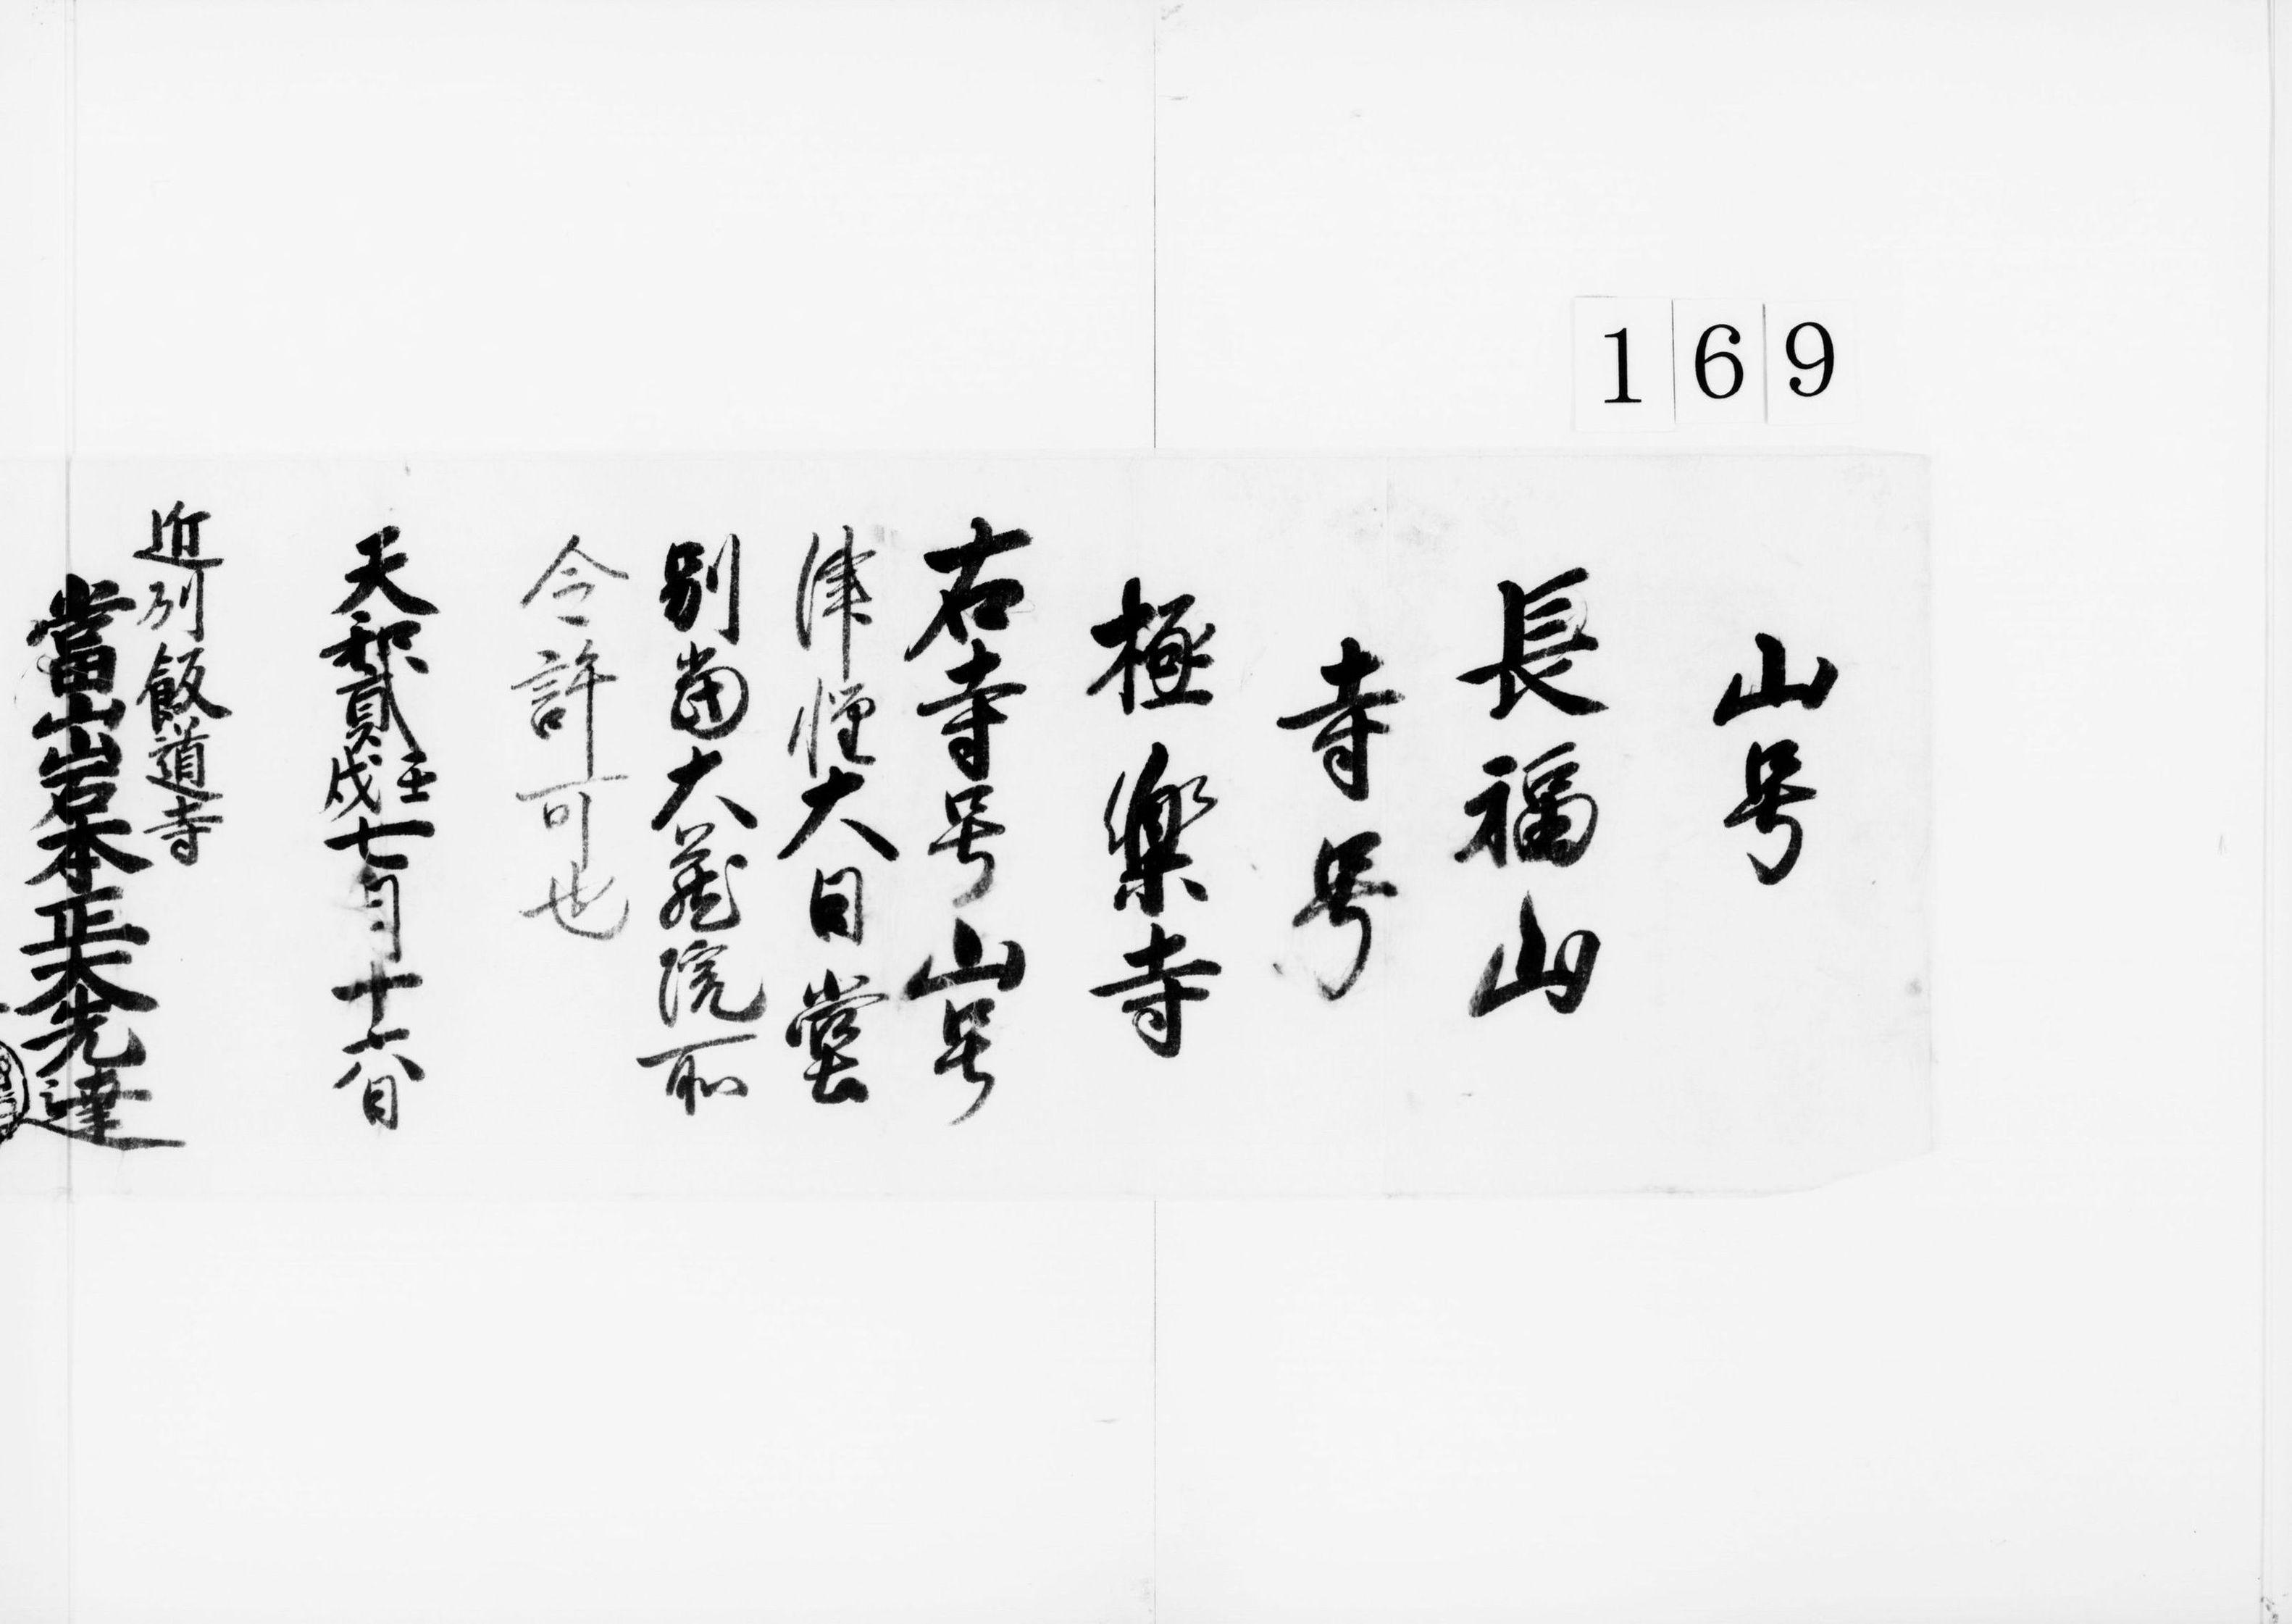 169
山号
長福山
寺号
極樂寺
右寺号山号
津軽大日堂
別當大蔵院所
令許可也
天和貳壬戌七月十六日
近州飯道寺
當山岩本正大先達